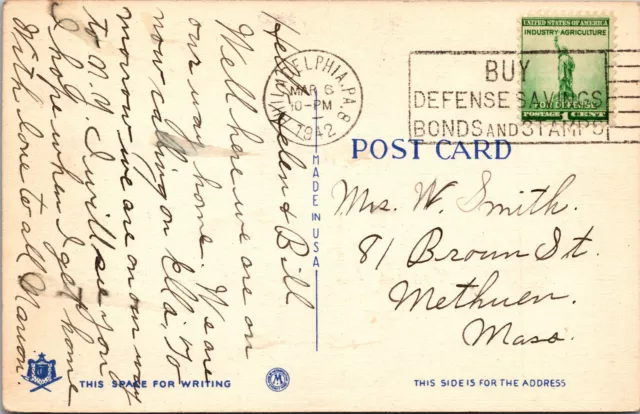 Hello Helen & Bill
Well here we are on
our way home. We are
now calling on Ella, To
morrow we are on our way
to N.Y I will see you
I hope when I get home
With love to all Marion
PHILADELPHIA, PA. 8
MAR 6
10-PM
1942
BUY
DEFENSE SAVINGS
BONDS AND STAMPS
UNITED STATES OF AMERICA
INDUSTRY·AGRICULTURE
FOR DEFENSE
POSTAGE 1 CENT
POST CARD
MADE IN USA
Mrs. W. Smith.
81 Brown St.
Methuen.
Mass.
THIS SPACE FOR WRITING
M
THIS SIDE IS FOR THE ADDRESS